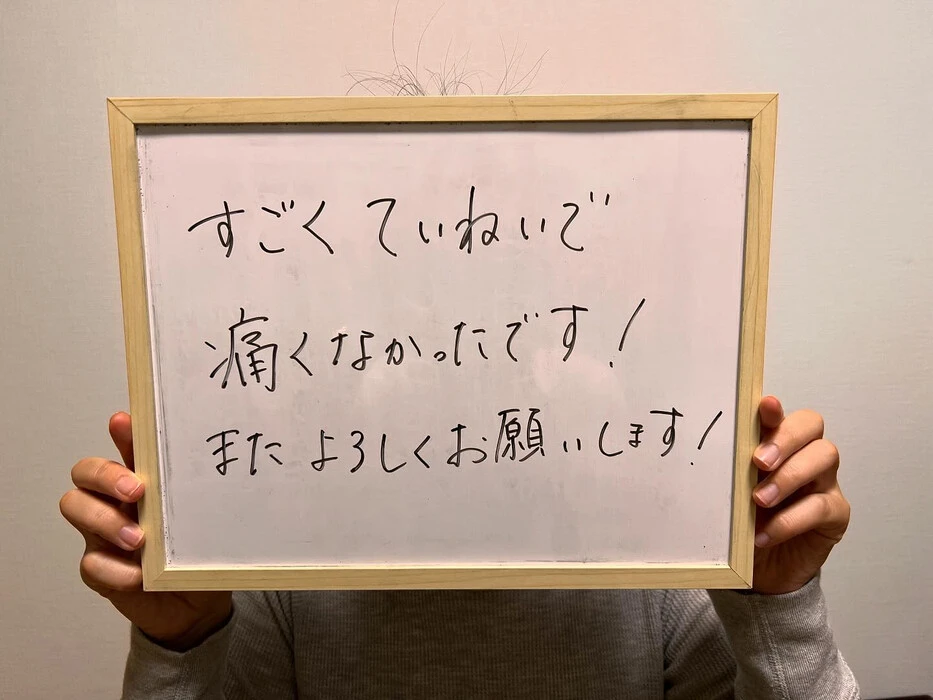 すごくていねいで
痛くなかったです!
またよろしくお願いします!